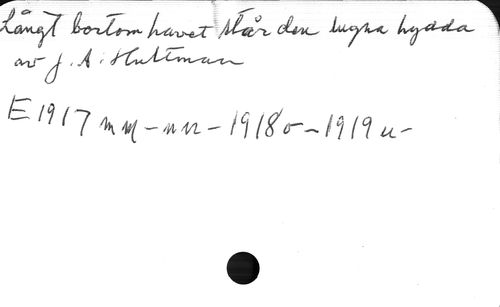 Långt bortom havet står den lugna hydda
av J. A. Hultman
E 1917 mm - nn - 1918 o - 1919 u -